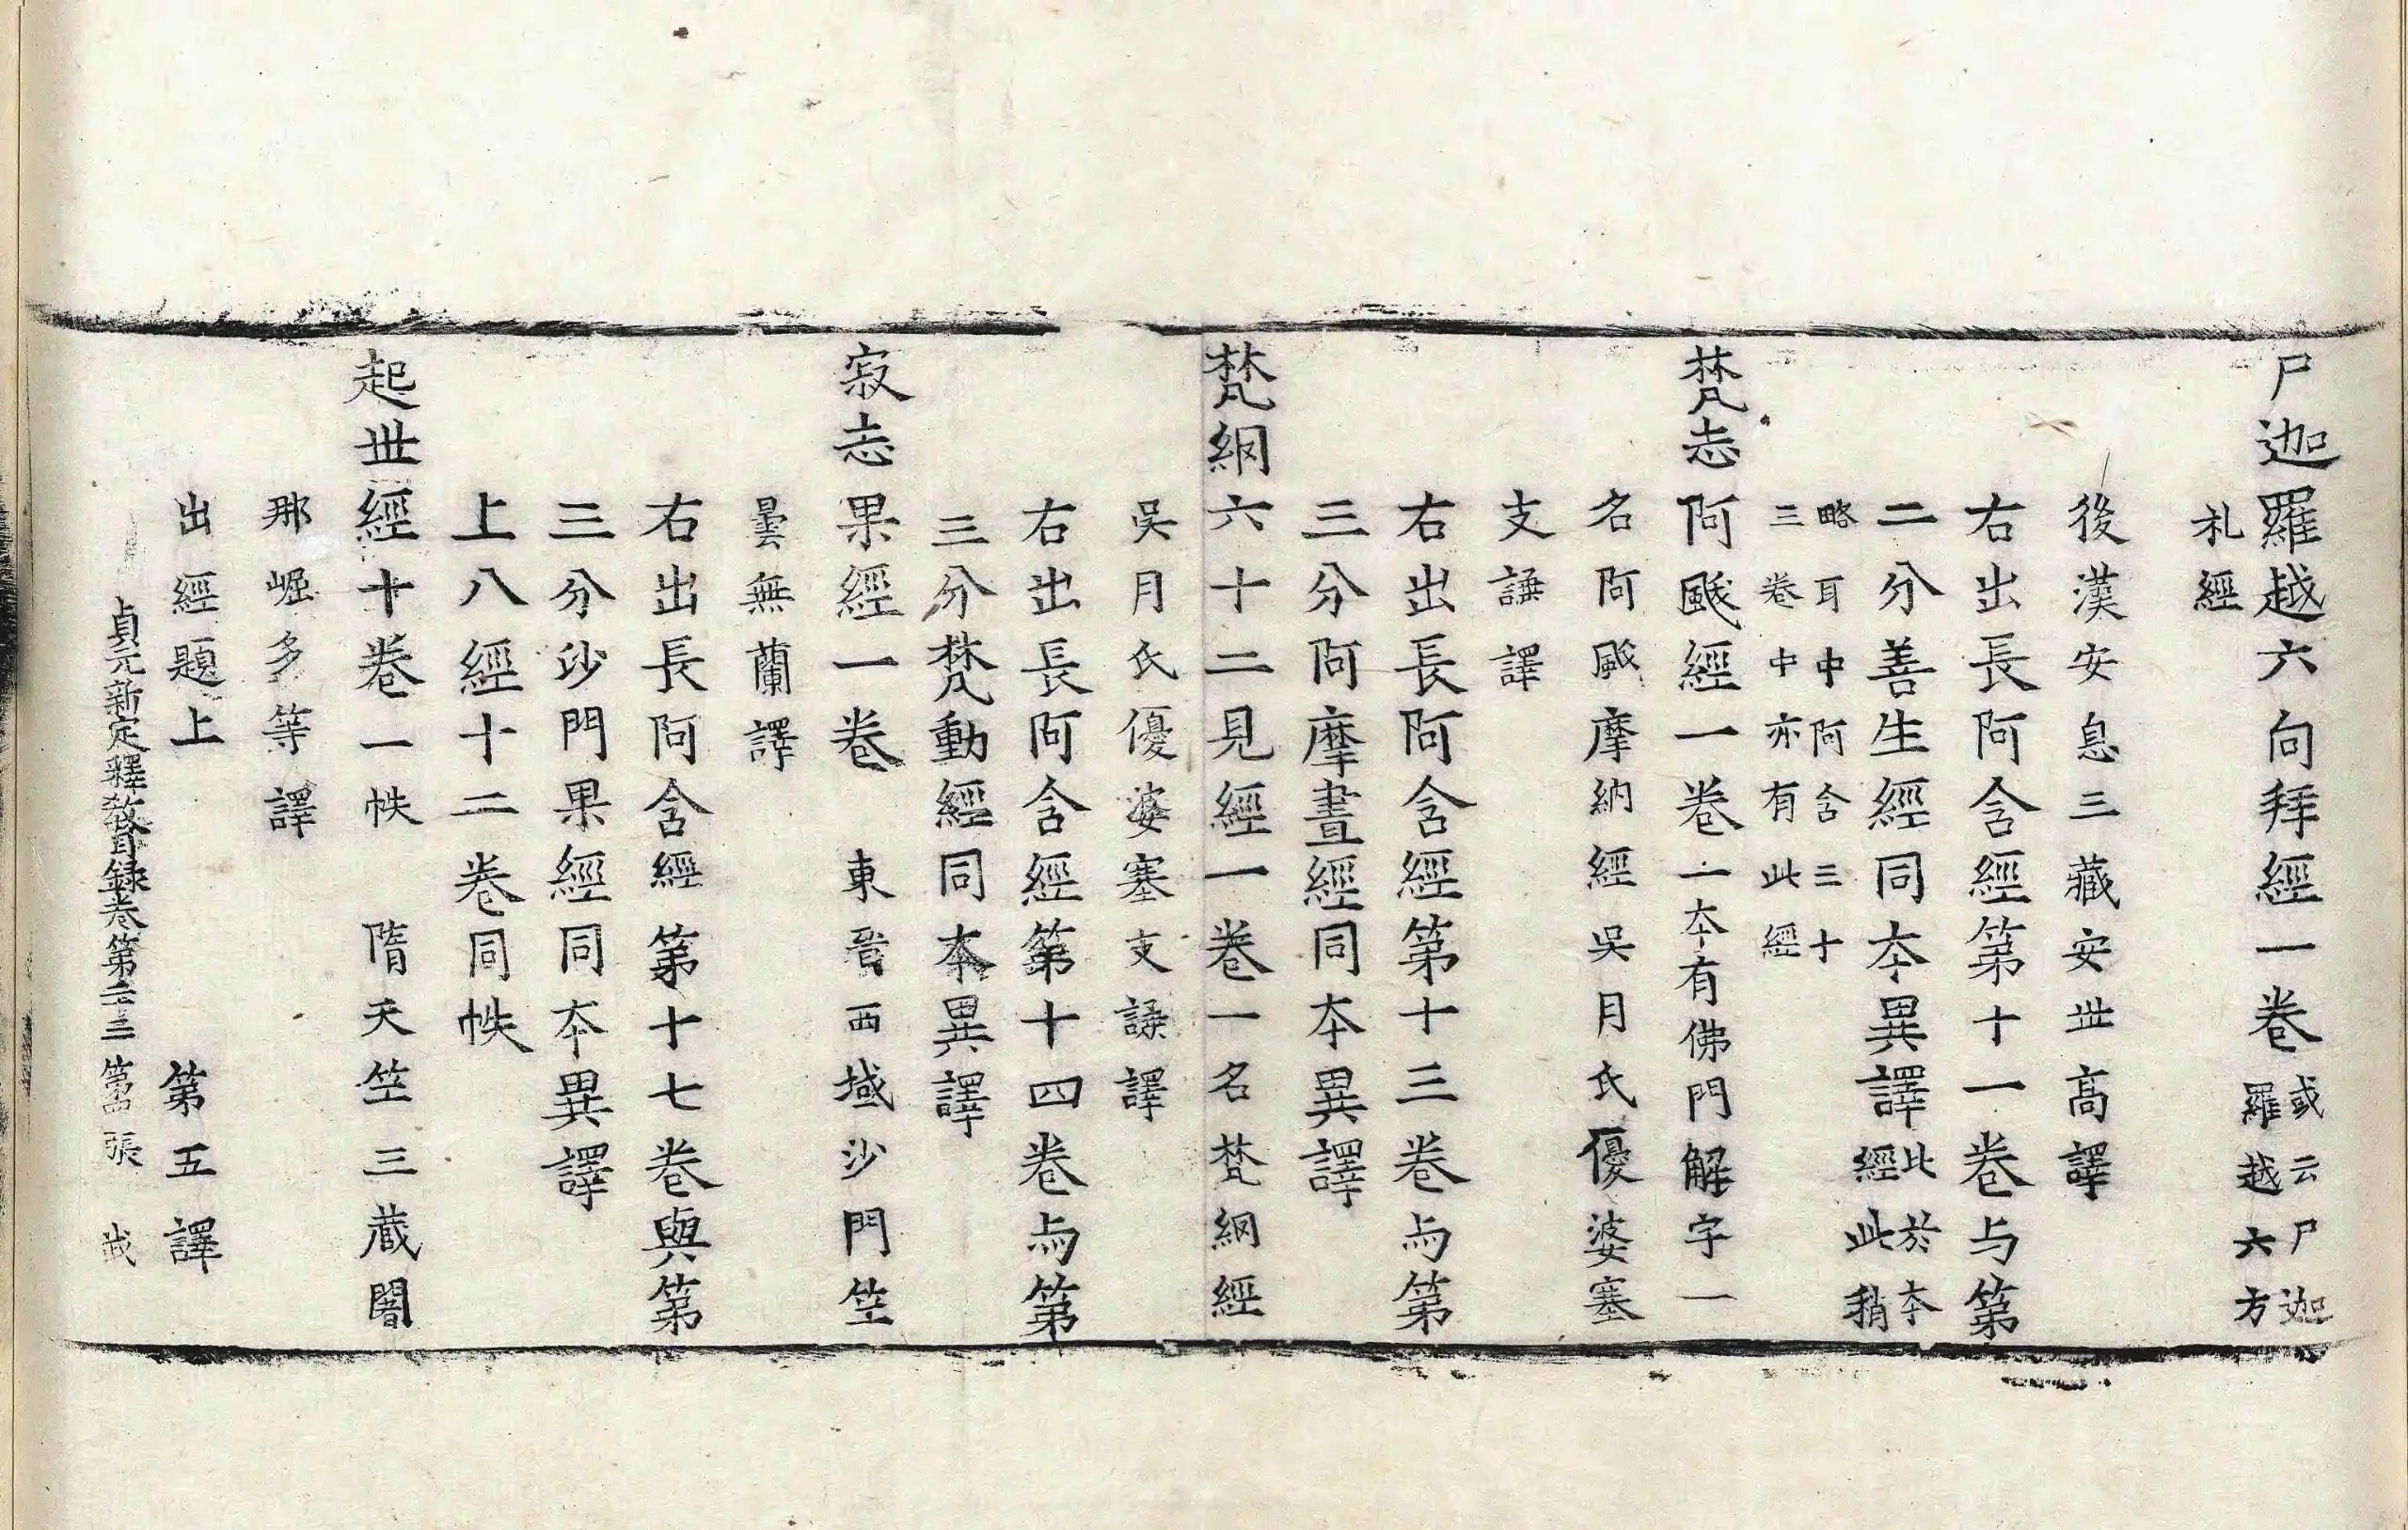 尸迦羅越六向拜經一卷或云尸迦羅越六方
礼經
後漢安息三藏安世高譯
右出長阿含經第十一卷与第
二分善生經同本異譯此於本經此稍
略耳中阿含三十三卷中亦有此經
梵志阿颰經一卷一本有佛門解字一
名阿颰摩納經吳月氏優婆塞
支謙譯
右出長阿含經第十三卷与第
三分阿摩晝經同本異譯
梵網六十二見經一卷一名梵網經
吳月氏優婆塞支謙譯
右出長阿含經第十四卷与第
三分梵動經同本異譯
寂志果經一卷 東晉西域沙門竺
曇無蘭譯
右出長阿含經第十七卷與第
三分沙門果經同本異譯
上八經十二卷同帙
起世經十卷一帙 隋天竺三藏闍
那崛多等譯
出經題上 第五譯
貞元新定釋教目録卷第三十三 第四張 戎